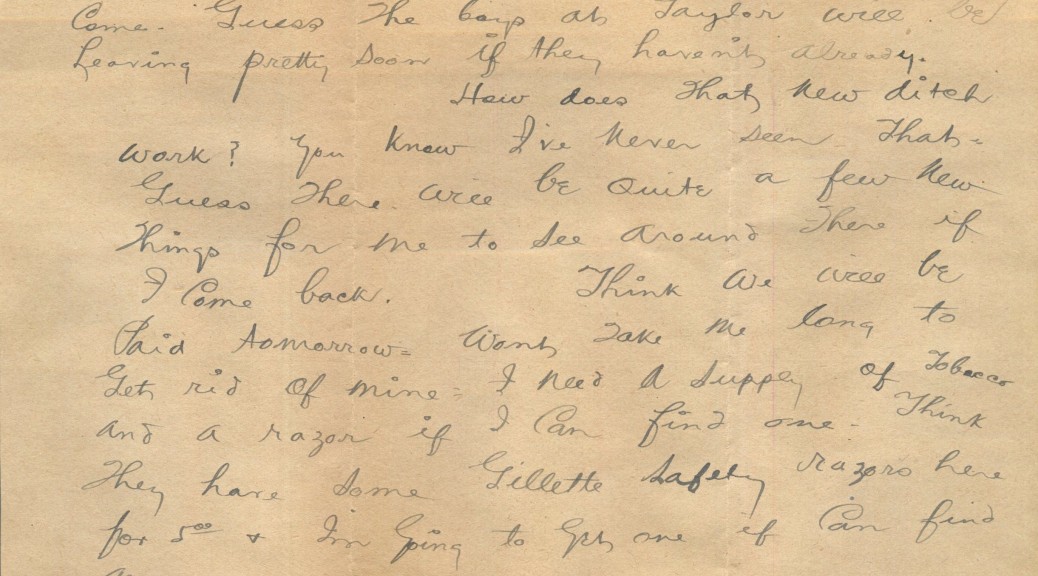 Come. Guess the boys at Taylor will be
Leaving pretty soon if they haven't already.
How does that new ditch
work? You know I've never seen that-
Guess there will be quite a few new
things for me to see around there if
I come back. Think we will be
Paid tomorrow= Wont take me long to
Get rid of mine= I need a supply of Tobacco
and a razor if I can find one- Think
They have some Gillette safety razors here
for 5.00 & Im going to get one if can find